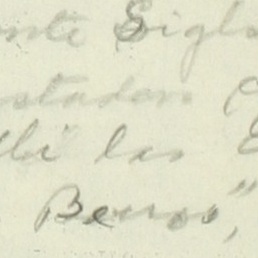 ente Sigl
stador
lli las
Berros",